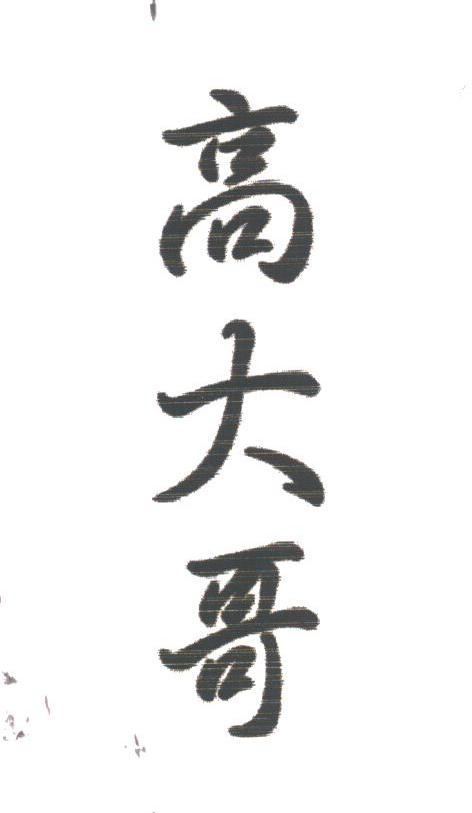 高大哥